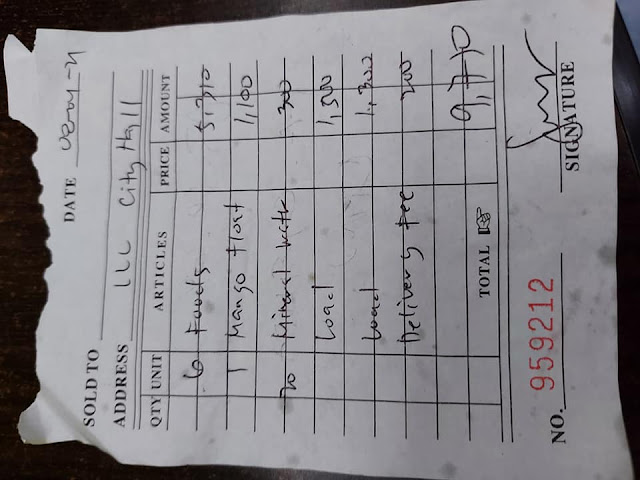 DATE
SOLD TO
ADDRESS City Hall
QTY UNIT ARTICLES PRICE AMOUNT
6 Foods 5,310
1 Mango float 1,100
20 Mineral watr 300
Load 1,500
Load 1,300
Delivery fee 200
TOTAL 9,710
NO. 959212 SIGNATURE